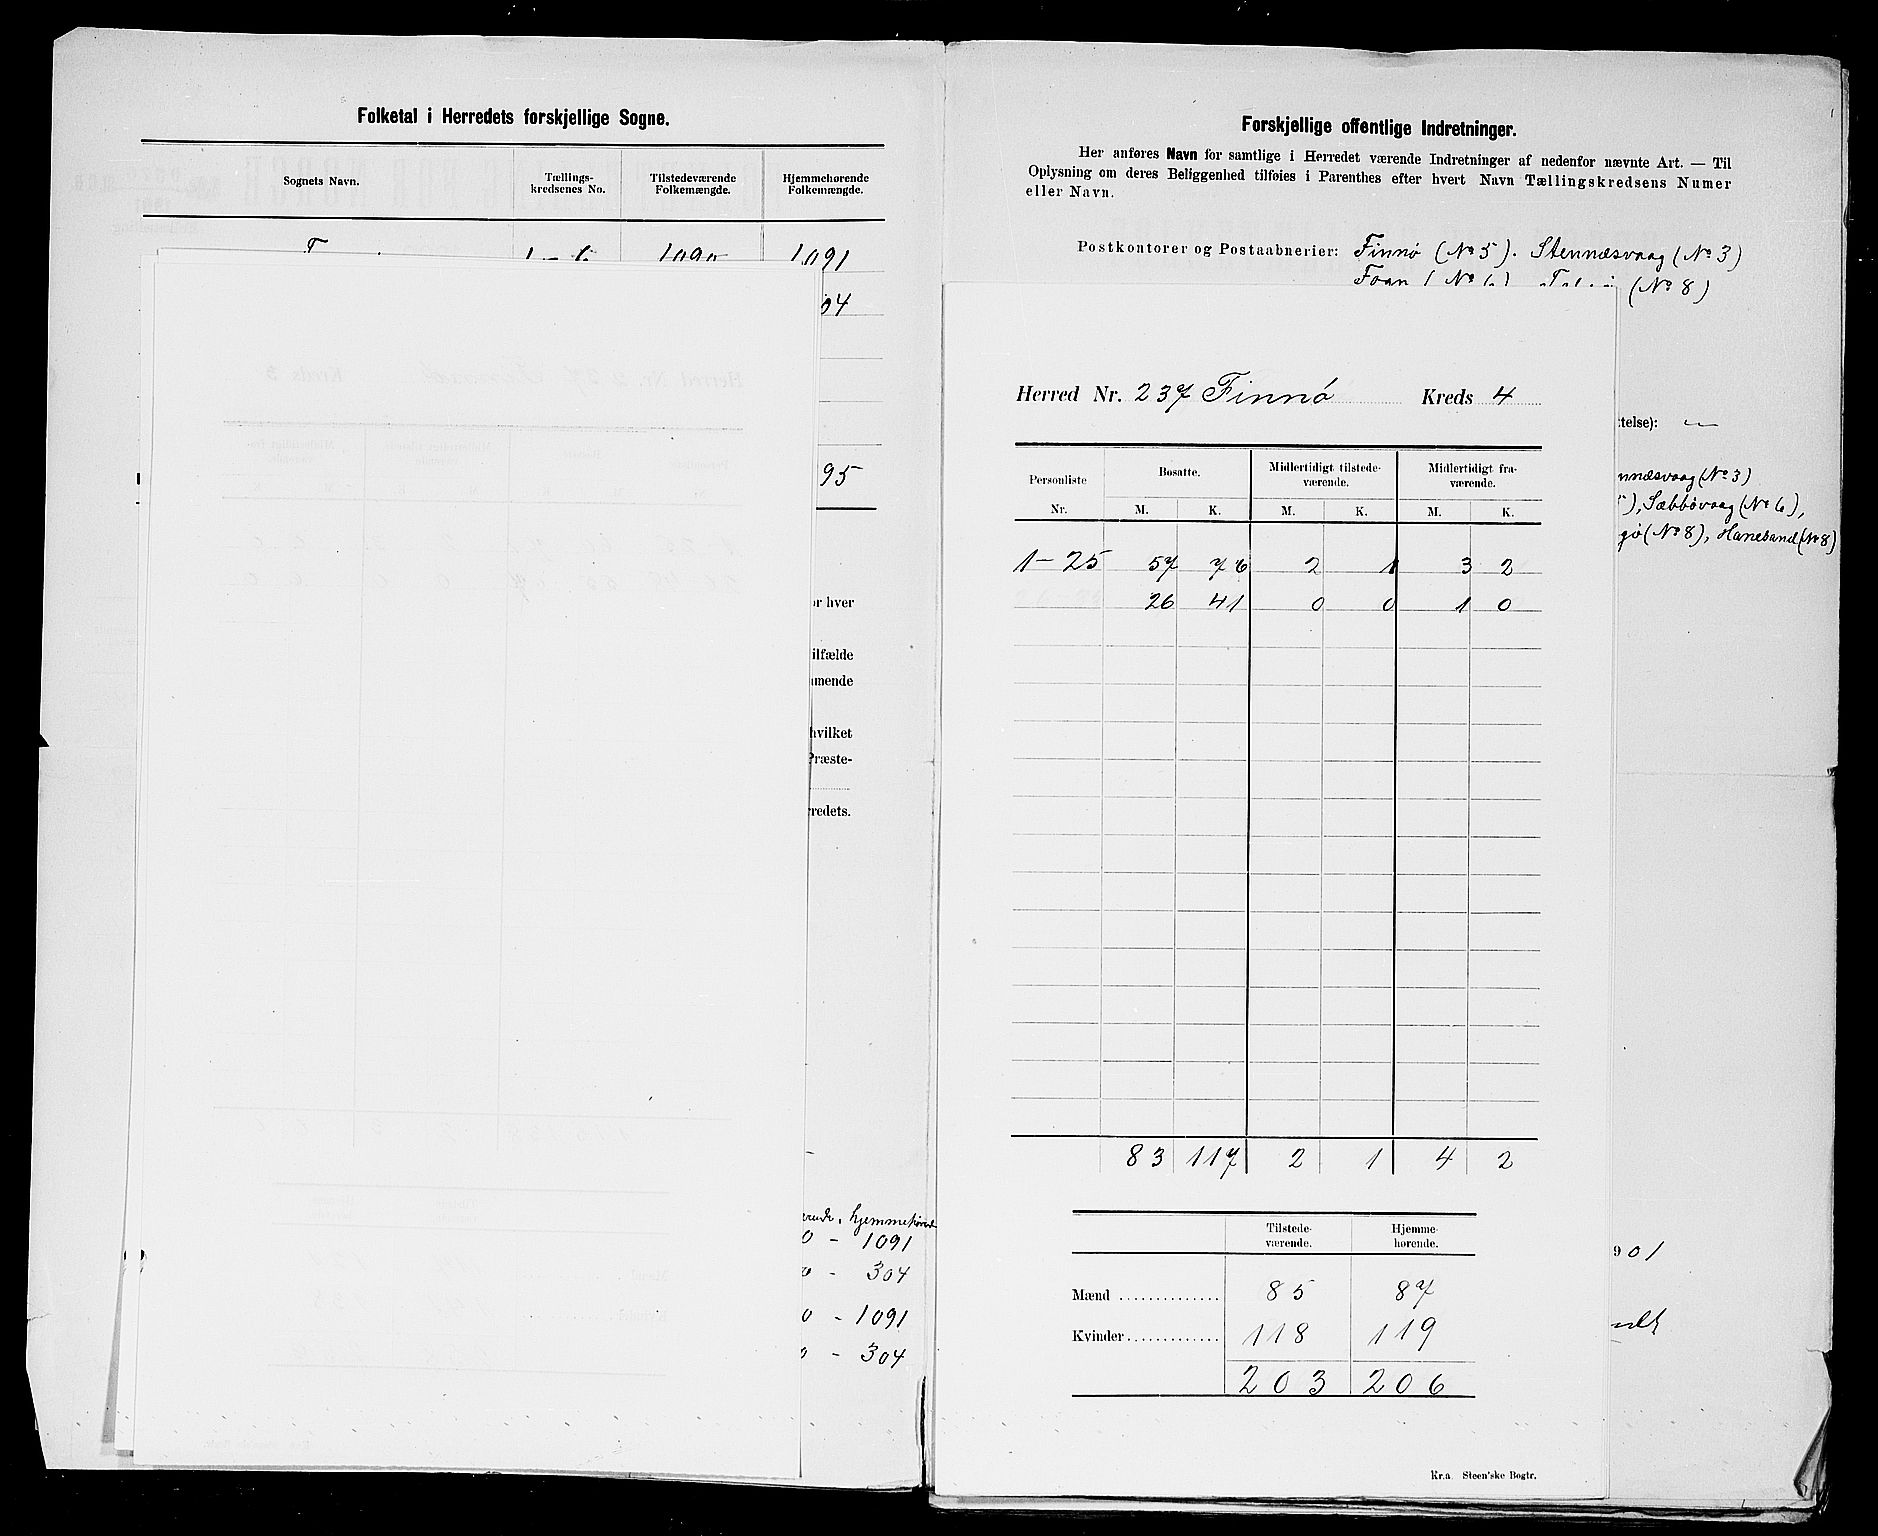 Folketal i Herredets forskjellige Sogne.
Sognets Navn. Tællings-kredsenes No. Tilstedeværende Folkemængde. Hjemmehørende Folkemængde.
1091
04
95
or hver
ilfælde
mende
hvilket
Præste-
redets.
hjemmehørende
0 - 1091
0 - 304
0 - 1091
0 - 304
Forskjellige offentlige Indretninger.
Her anføres Navn for samtlige i Herredet værende Indretninger af nedenfor nævnte Art. — Til
Oplysning om deres Beliggenhed tilføies i Parenthes efter hvert Navn Tællingskredsens Numer
eller Navn.
Postkontorer og Postaabnerier: Finnø (No 5). Stennæsvaag (No 3)
(No 8)
ttelse): —
nnæsvaag (No 3)
), Sæbbøvaag (No 6),
gø (No 8), Hanesand (No 8)
901
Herred Nr. 237 Finnø Kreds 4
Personliste Bosatte. Midlertidigt tilstede-værende. Midlertidigt fra-værende.
Nr. M. K. M. K. M. K.
1-25 57 76 2 1 3 2
26 41 0 0 1 0
83 117 2 1 4 2
Tilstede-værende. Hjemme-hørende.
Mænd 85 87
Kvinder 118 119
203 206
Kr.a. Steen'ske Bogtr.